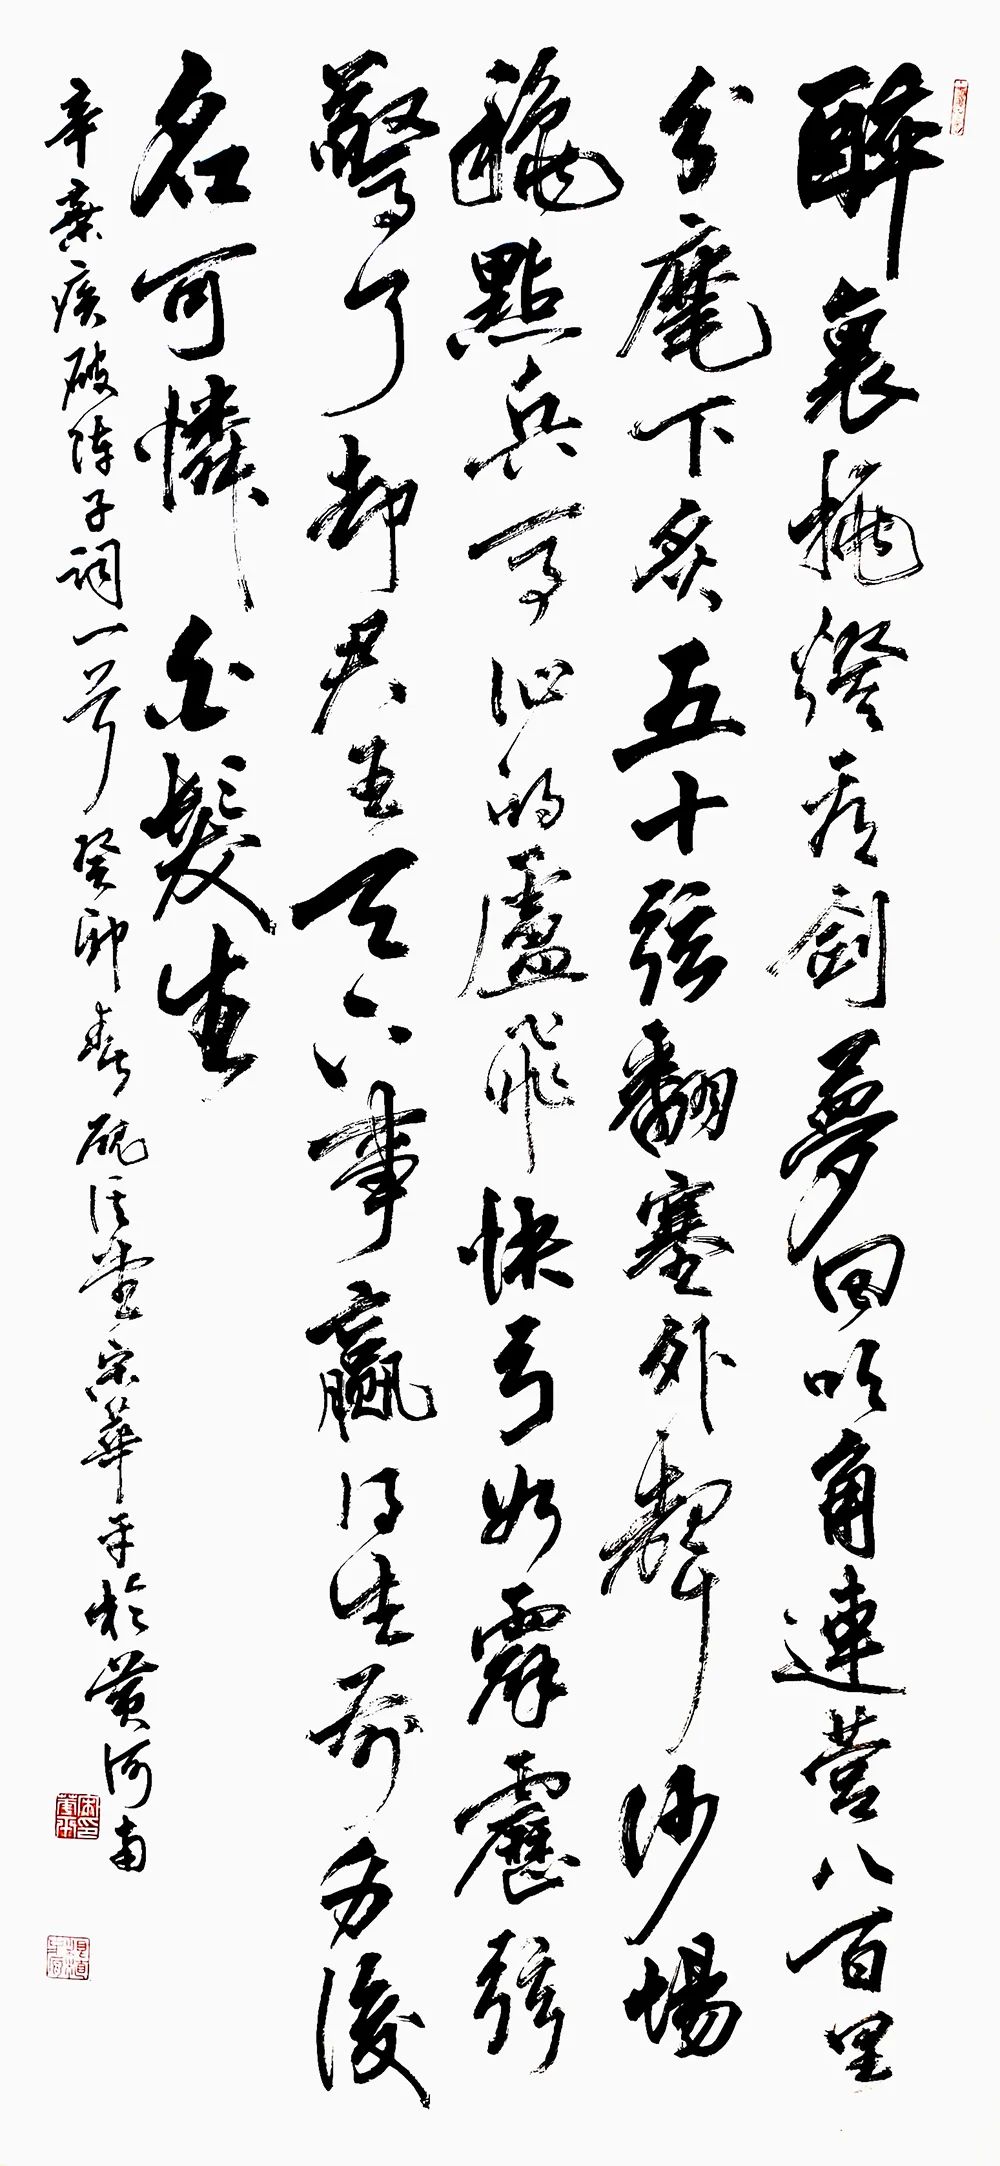 醉裏挑燈看劍夢回吹角連營八百里
分麾下炙五十弦翻塞外聲沙場
龝點兵馬作的盧飛快弓如霹靂弦
驚了却君王天下事贏得生前身後
名可憐白髮生
辛棄疾破陣子詞一首癸卯春堂宋華平於黃河南